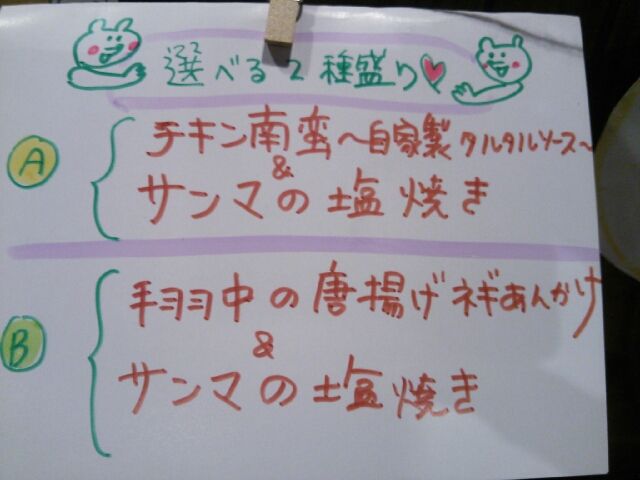 選べる2種盛り
A
チキン南蛮〜自家製タルタルソース〜
&
サンマの塩焼き
B
手羽中の唐揚げネギあんかけ
&
サンマの塩焼き